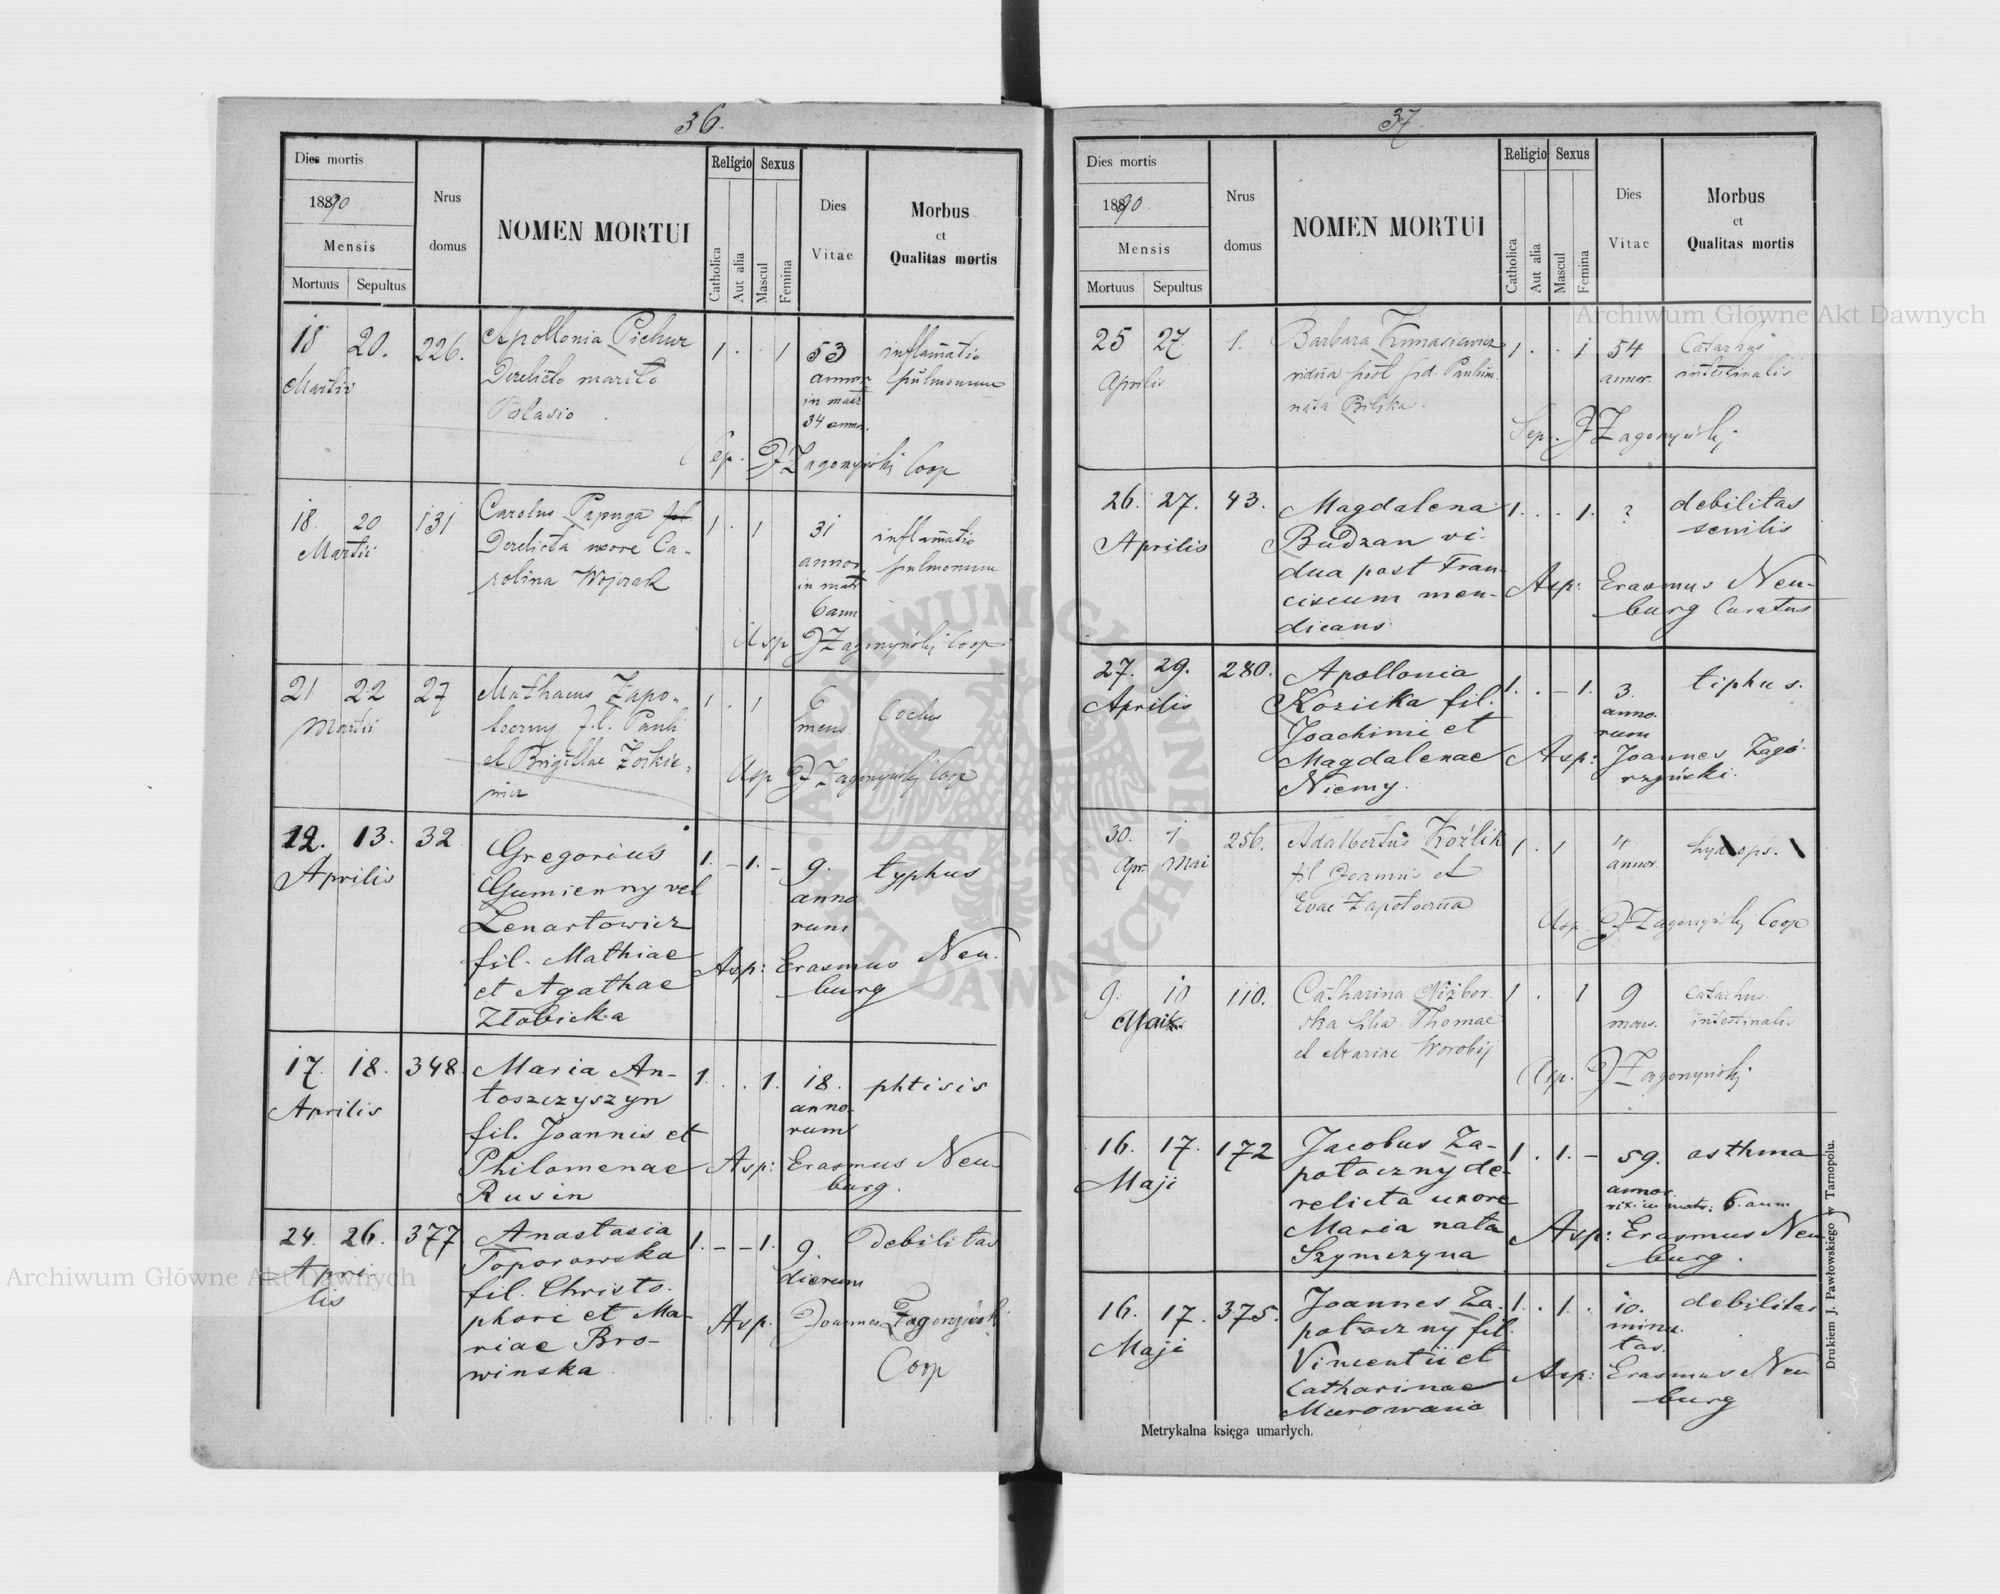 36.
Dies mortis
1890
Mensis
Mortuus Sepultus
Nrus domus
NOMEN MORTUI
Religio Sexus
Catholica
Aut alia
Mascul
Femina
Dies Vitae
Morbus
et
Qualitas mortis
18 20. 226. Apollonia Pichur 1 . 1 53 inflamatio
Martii Derelicto marito annor. pulmonum
Blasio in matr.
34 anno.
Sep. J Zagorzyński Coop
18. 20 131 Carolus Papuga fil. 1 . 1 31 inflamatio
Martii Derelicta uxore Ca- annor. pulmonum
rolina Wojczak in matr
6 ann
Asp J Zagorzyński Coop
21 22 27 Mathaeus Zapo- 1 . 1 6
Martii toczny fil. Pauli mens.
et Brigittae
Asp J Zagorzyński Coop
12. 13. 32 Gregorius 1. - 1. - 9. typhus
Aprilis Gumienny vel anno
Lenartowicz rum
fil. Mathiae Asp: Erasmus Neu-
et Agathae burg
Złobicka
17. 18. 348. Maria An- 1. . . 1. 18. phtisis
Aprilis toszczyszyn anno-
fil. Joannis et rum
Philomenae Asp: Erasmus Neu-
Rusin burg.
24. 26. 377 Anastasia 1. - - 1. 9. Debilitas
Apri Toporowska dierum
lis fil. Christo-
phori et Ma- Asp. Joannes Zagorzyński
riae Bro- Coop
winska
37.
Dies mortis
1890.
Mensis
Mortuus Sepultus
Nrus domus
NOMEN MORTUI
Religio Sexus
Catholica
Aut alia
Mascul
Femina
Dies Vitae
Morbus
et
Qualitas mortis
25 27 1. Barbara 1 . . 1 54 Catarhus
Aprilis vidua post annor. intestinalis
nata Bilska.
Sep. J Zagorzyński.
26. 27. 43. Magdalena 1. . . 1. ? debilitas
Aprilis Budzan vi- senilis
dua post Fran- Asp: Erasmus Neu-
ciscum men- burg Curatus
dicans
27. 29. 280. Apollonia 1. . - 1. 3. tiphus.
Aprilis Kozicka fil. anno-
Joachimi et rum
Magdalenae Asp: Joannes Zagó-
Niemy. rzyński.
30. 1. 256. Adalbertus Koźlik 1 . 1 4 hydrops.
Apr. Mai fil Joannis et annor.
Evae Zapotoczna
Asp. J Zagorzyński Coop
9. 10 110. Catharina Niżbor- 1 . 1 9 catarhus
Maii ska filia Thomae mens. intestinalis
et Mariae Worobij
Asp. J Zagorzyński
16. 17. 172 Jacobus Za- 1 . 1. - 59. asthma
Maji potoczny de- annor.
relicta uxore vix. in matr: 6. ann
Maria nata Asp: Erasmus Neu
Szymczyna burg.
16. 17. 375. Joannes Za- 1. . 1. . 10. debilitas
Maji potoczny fil. minu-
Vincentii et tas.
Catharinae Asp: Erasmus Neu
Murowana burg
Metrykalna księga umarłych.
Drukiem J. Pawłowskiego w Tarnopolu.
Archiwum Główne Akt Dawnych
Archiwum Główne Akt Dawnych
ARCHIWUM GŁÓWNE · AKT DAWNYCH ·